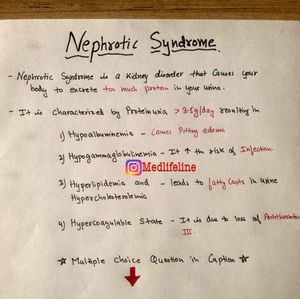 Nephrotic Syndrome.
- Nephrotic Syndrome is a Kidney disorder that Causes your
body to excrete too much protein in your urine.
- It is characterized by Proteinuria > 3.5g/day resulting in
1) Hypoalbuminemia - Causes Pitting edema
2) Hypogammaglobulinemia - It ↑ the risk of Infection.
Medlifeline
3) Hyperlipidemia and - leads to fatty Casts in urine
Hypercholesterolemia
4) Hypercoagulable State - It is due to loss of Antithrombin
III.
☆ Multiple choice Question in Caption ☆